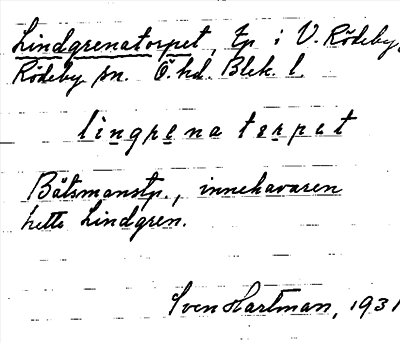 Lindgrenatorpet, tp i V. Rödeby,
Rödeby sn. Ö. hd. Blek. l.
lingrena torpet
Båtsmanstp., innehavaren
hette Lindgren.
Sven Hartman, 1931